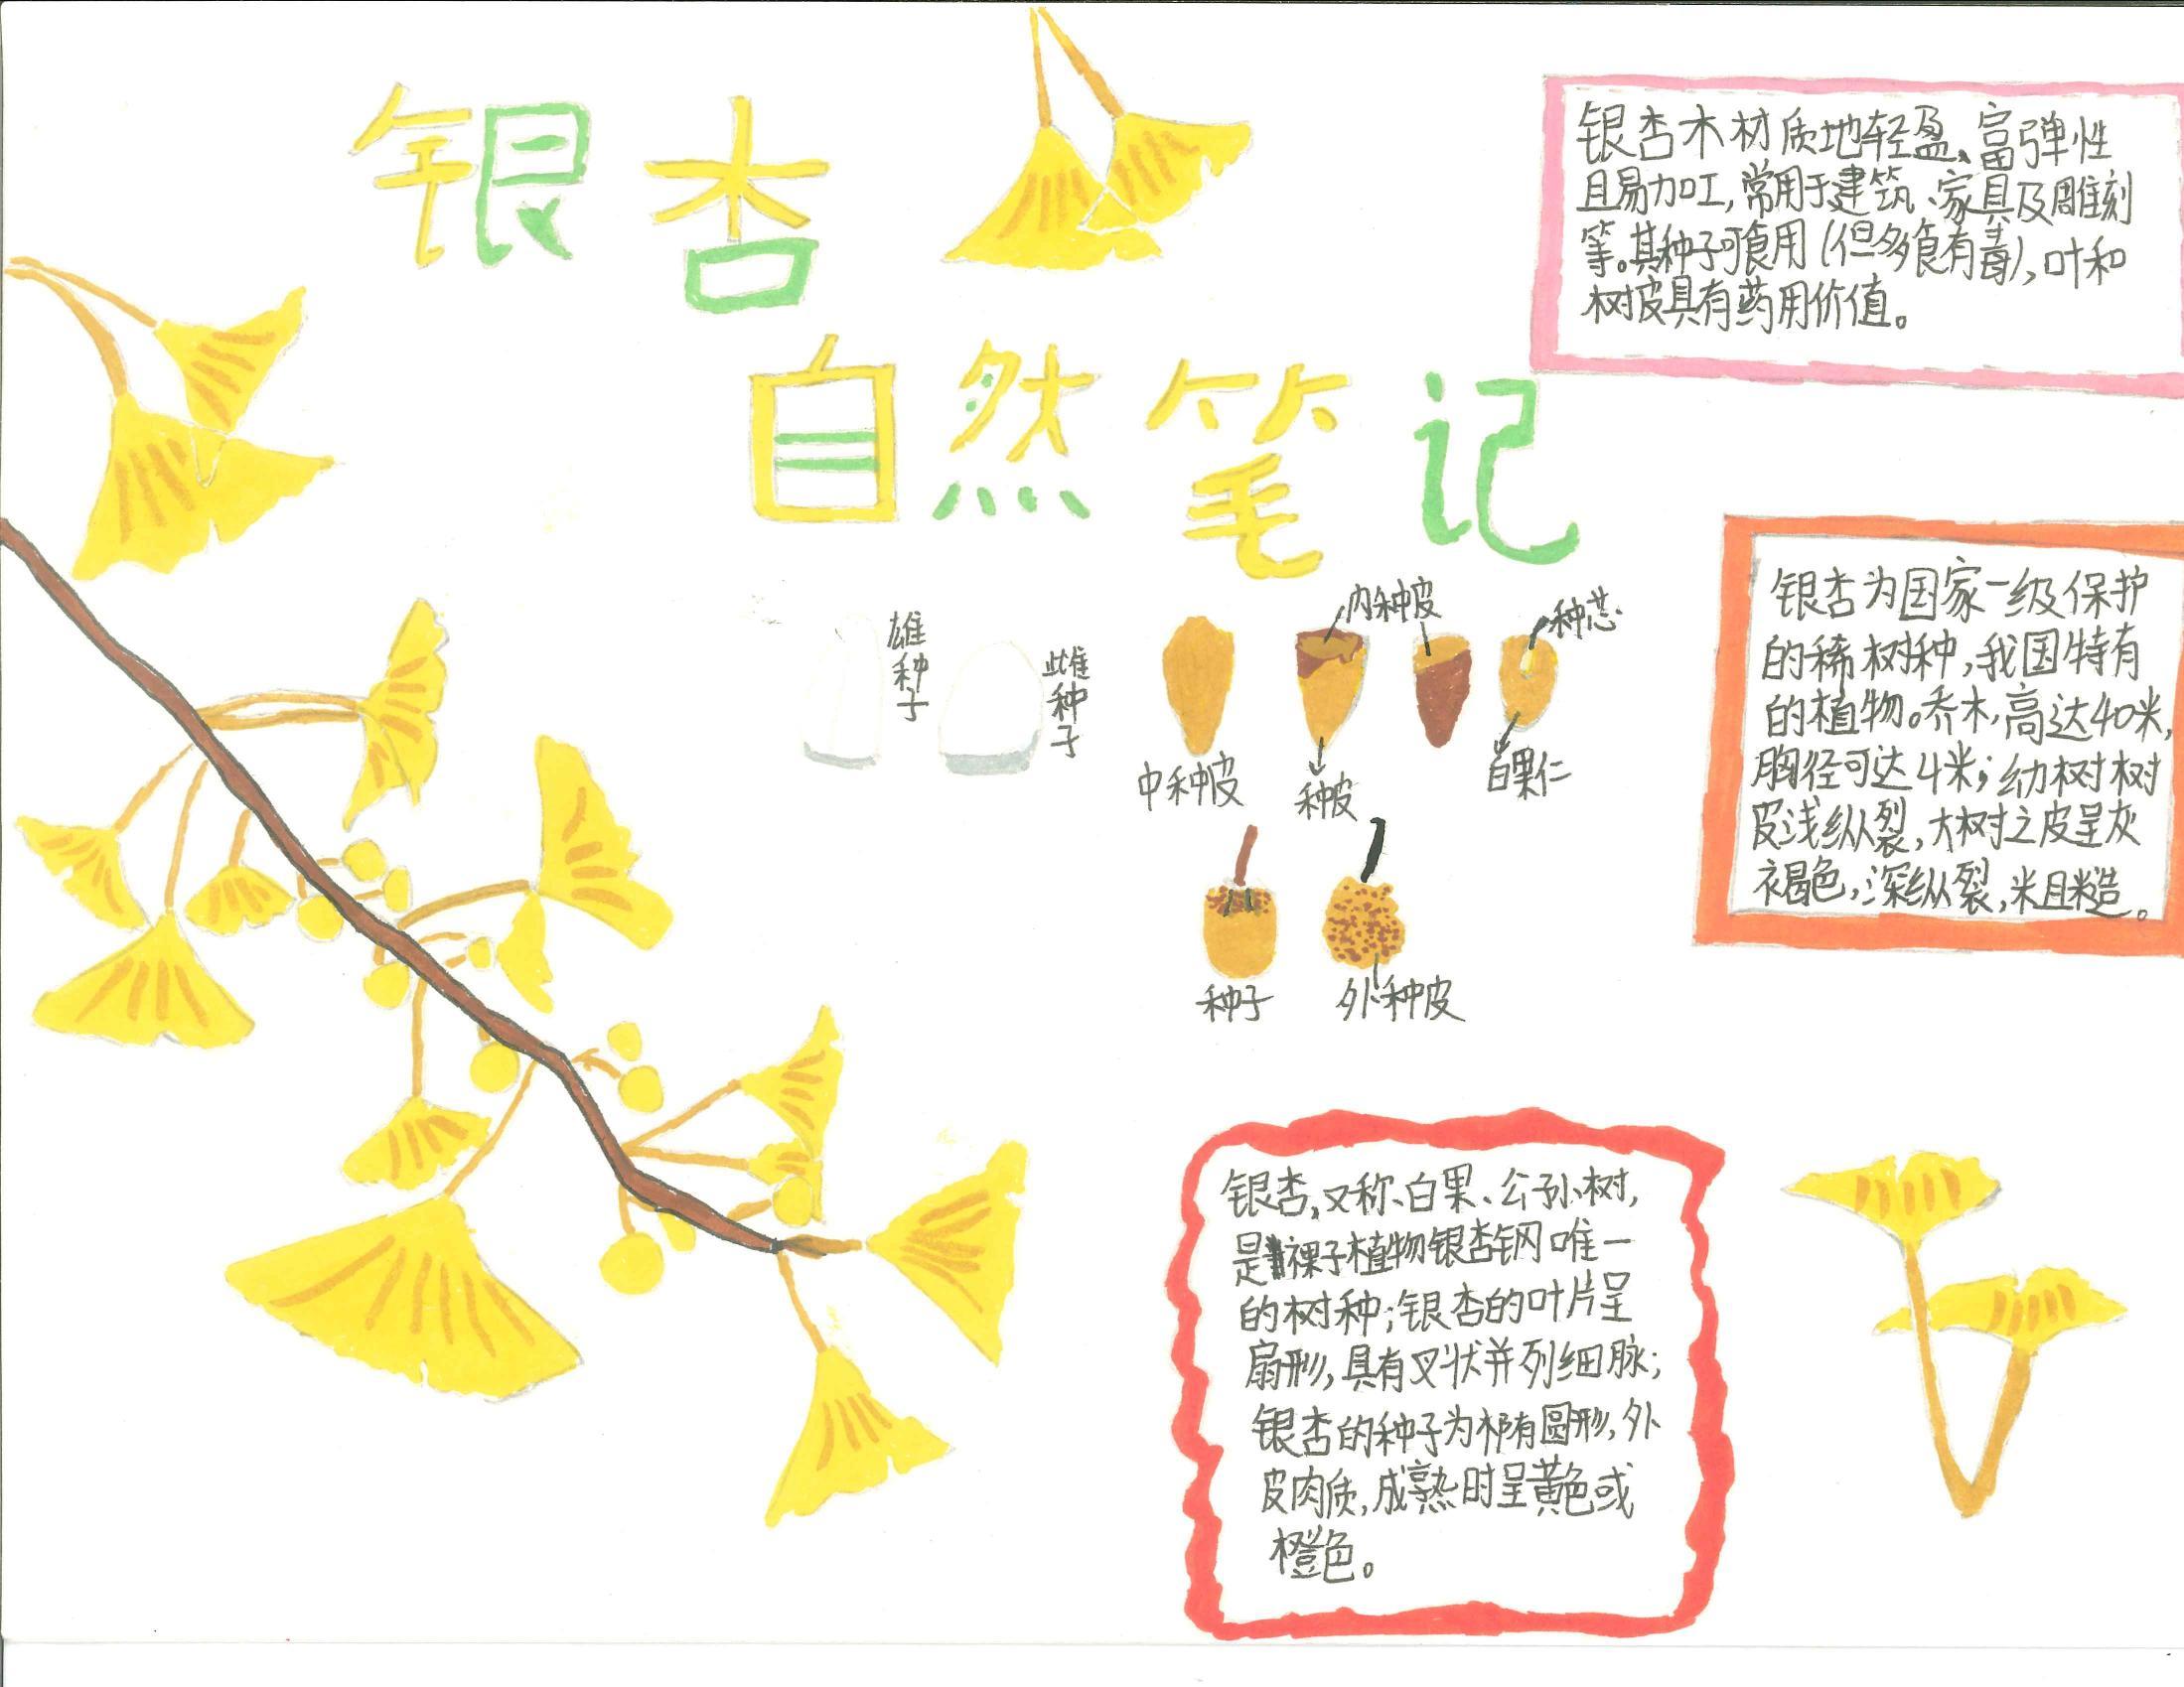 银杏
自然笔记
银杏木材质地轻盈、富弹性
且易加工,常用于建筑、家具及雕刻
等。其种子可食用(但多食有毒),叶和
树皮具有药用价值。
雄种子
雌种子
内种皮
种芯
中种皮
种皮
白果仁
种子
外种皮
银杏为国家一级保护
的稀树种,我国特有
的植物。乔木,高达40米,
胸径可达4米;幼树树
皮浅纵裂,大树之皮呈灰
褐色,深纵裂,粗糙。
银杏,又称、白果、公孙树,
是裸子植物银杏钢唯一
的树种;银杏的叶片呈
扇形,具有叉状并列细脉;
银杏的种子为圆形,外
皮肉质,成熟时呈黄色或
橙色。